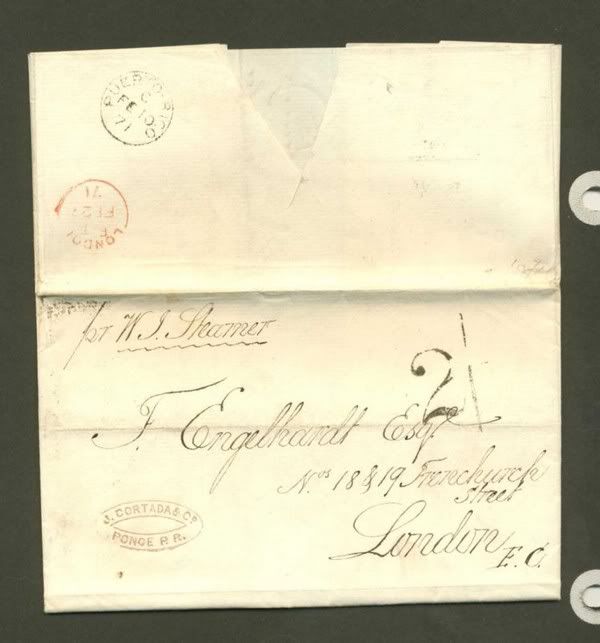 PUERTO-RICO
C
FE 10
71
LONDON
F
FE 2
71
pr W. I. Steamer
2/
F. Engelhardt Esqr.
Nos 18 & 19 Frenchurch
Street
London
E.C.
J. CORTADA & Co
PONCE P. R.